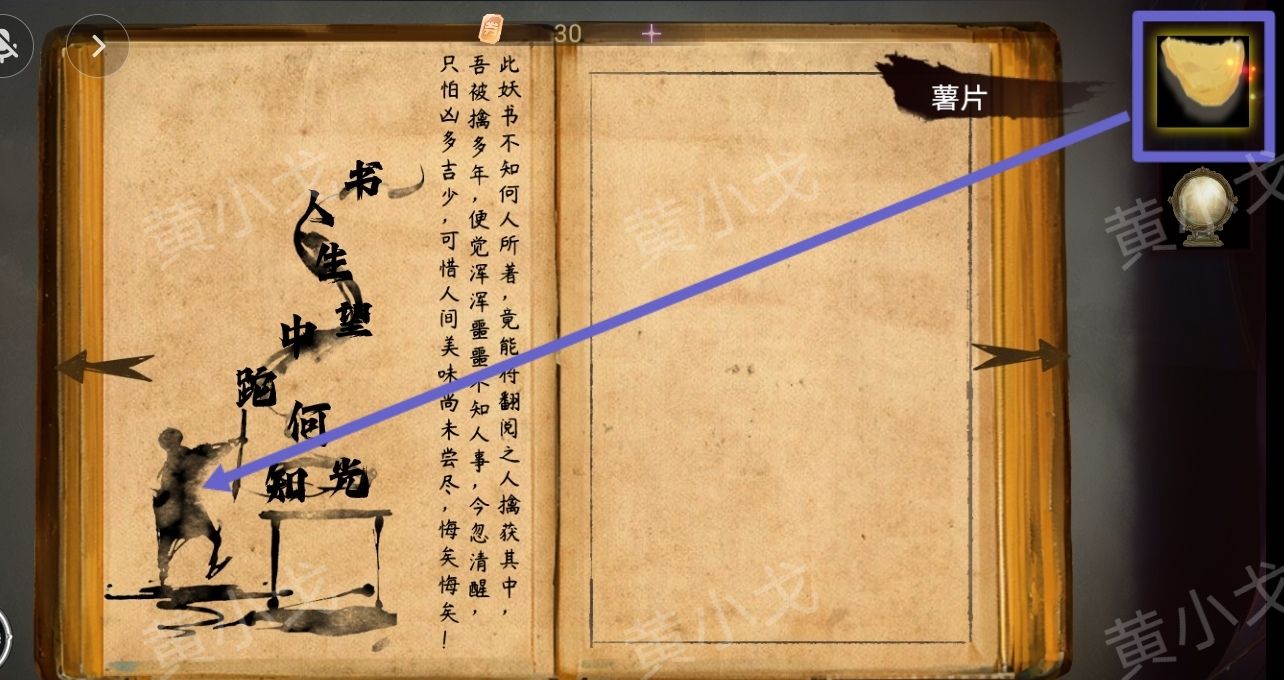 30
尝
薯片
此妖书不知何人所著，竟能将翻阅之人擒获其中，
吾被擒多年，便觉浑浑噩噩不知人事，今忽清醒，
只怕凶多吉少，可惜人间美味尚未尝尽，悔矣悔矣！
书
人
生
望
中
跎
何
知
光
黄小戈
黄小戈
黄小戈
黄小戈
黄小戈
黄小戈